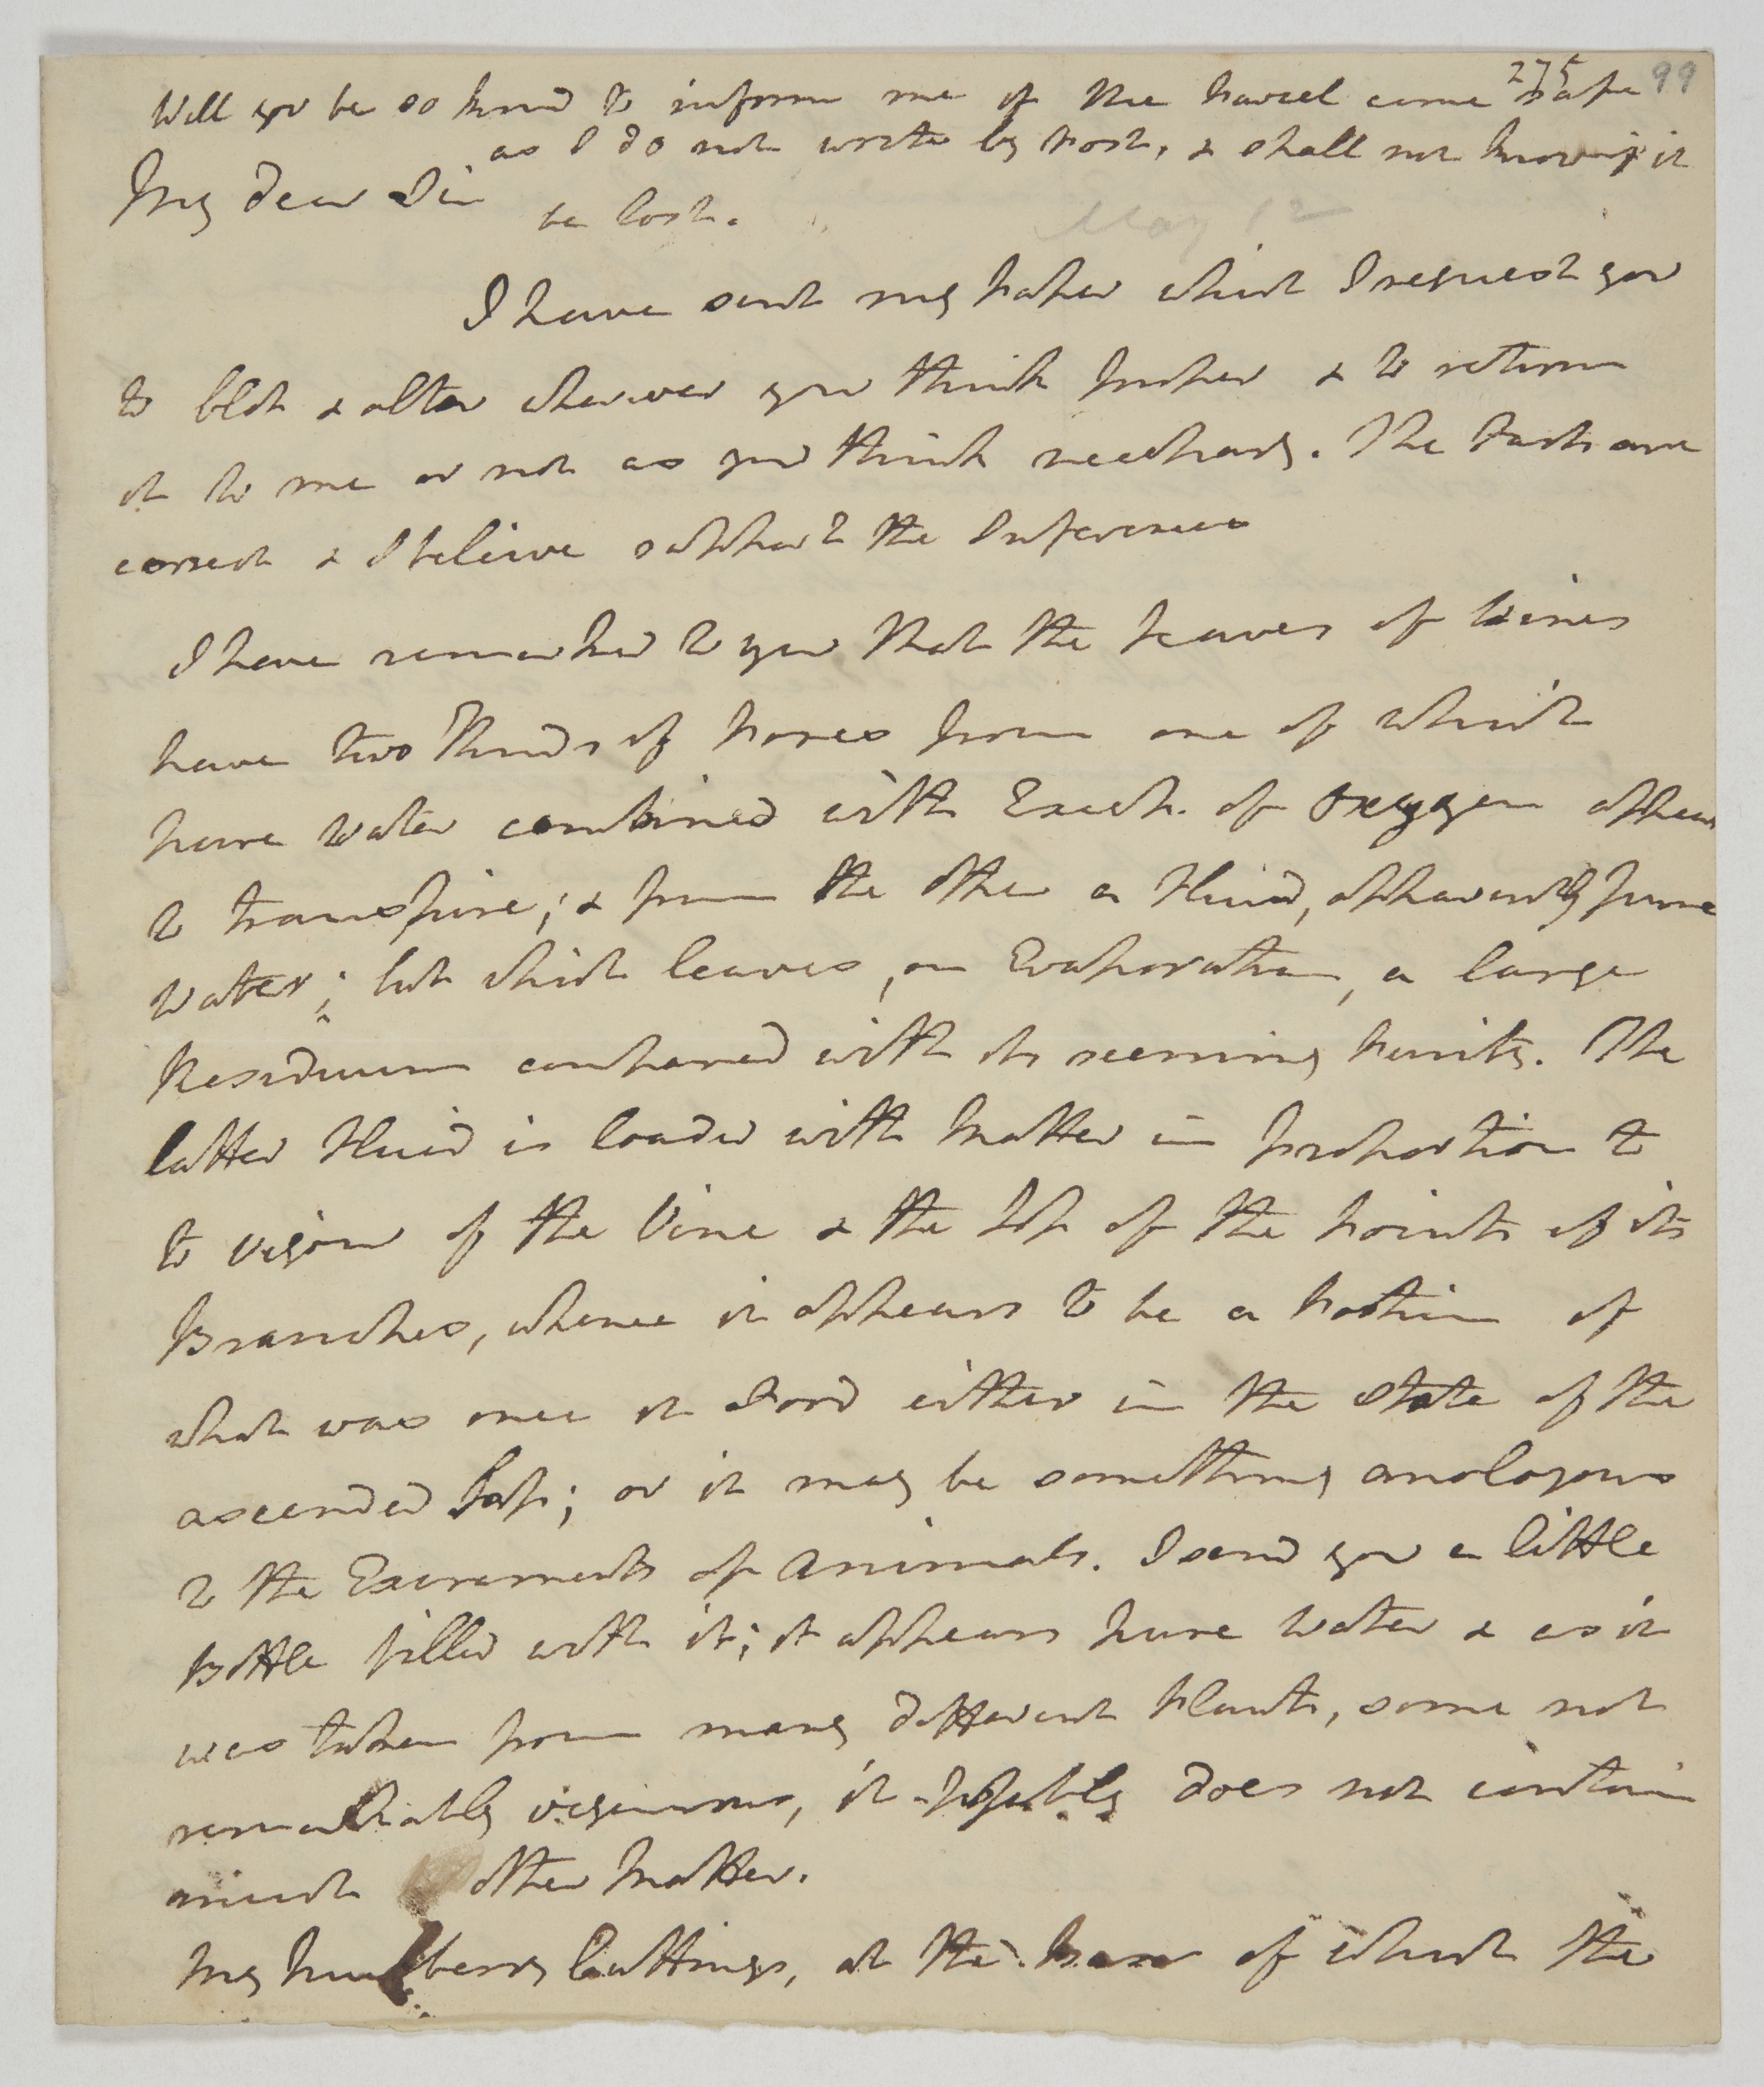 275 99
Will you be so kind to inform me if the Parcel come safe
as I do not write by Post, & shall not know if it
be lost.
My dear Sir
May 12
I have sent my Paper which I request you
to blot & alter wherever you think proper & to return
it to me or not as you think necessary. The Facts are
correct & I beleive support the Inferences
I have remarked to you that the Leaves of Vines
have two kinds of Pores from one of which
pure Water combined with Excess of Oxygen appears
to transpire; & from the other a Fluid, apparently pure
Water; but which leaves, on Evaporation, a large
Residuum compared with its seeming Purity. The
latter Fluid is loaded with Matter in proportion to
to vigour of the Vine & the Sap of the Points of its
Branches, whence it appears to be a Portion of
what was once its Food either in the State of the
ascended Sap; or it may be something analogous
to the Excrements of Animals. I send you a little
Bottle filled with it; it appears pure Water & as it
was taken from many different Plants, some not
remarkably vigourous, it probably does not contain
much other Matter.
My Mulberry Cuttings, at the base of which the